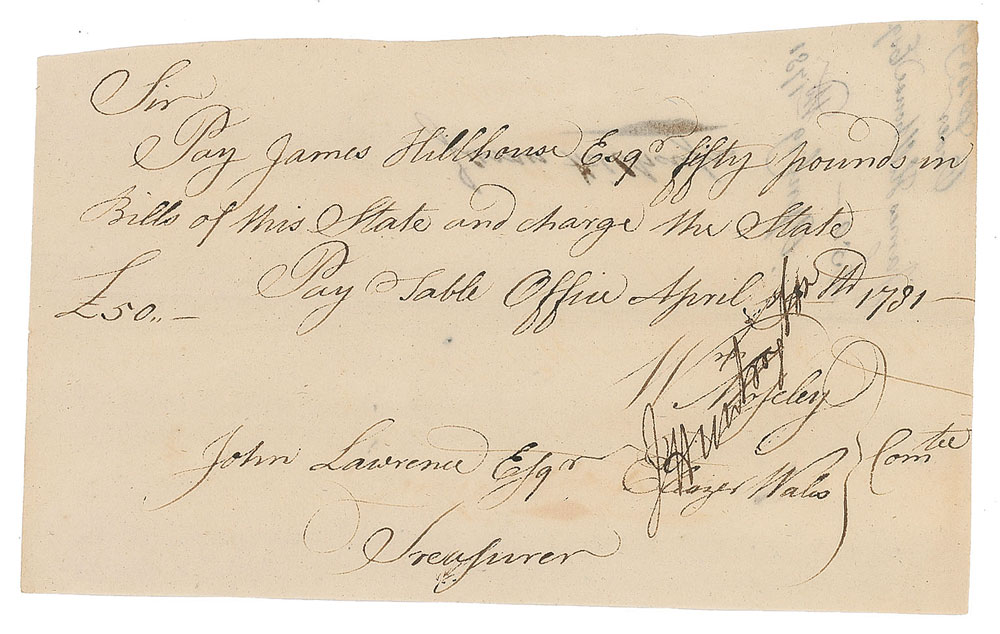 Sir
Pay James Hillhouse Esqr fifty pounds in
Bills of this State and charge the State
£50,,— Pay Table Office April th 1781—
Wm Moseley
John Lawrence Esqr Eleazer Wales Comtee
Treasurer